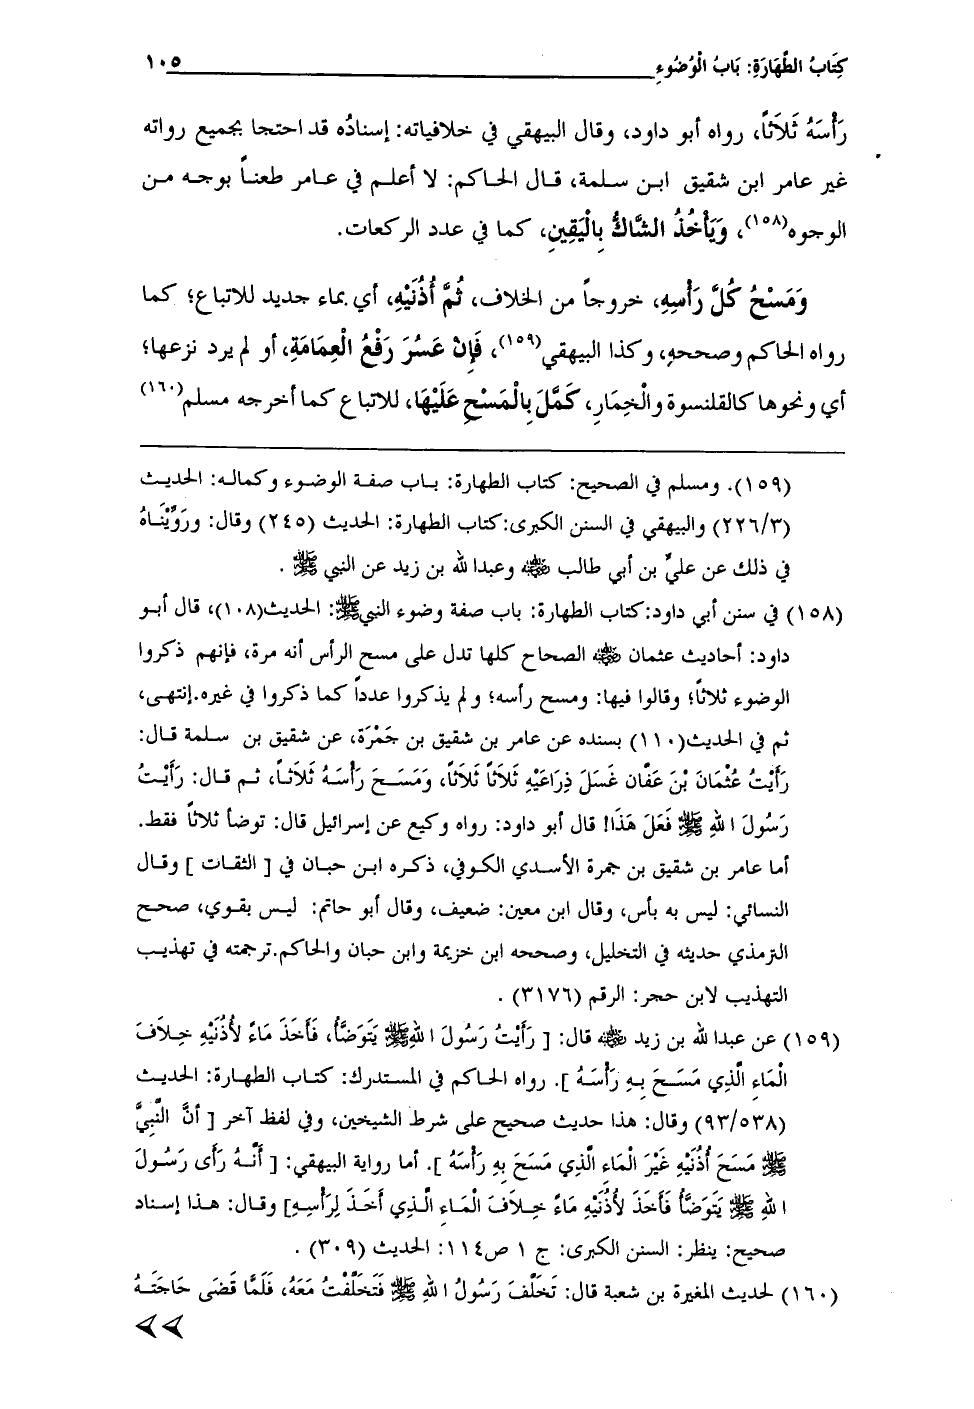 كِتَابُ الطَّهَارَةِ: بَابُ الْوُضُوءِ ١٠٥
رَأْسَهُ ثَلاَثاً، رواه أبو داود، وقال البيهقي في خلافياته: إسنادُه قد احتجا بجميع رواته
غير عامر ابن شقيق ابـن سلمة، قـال الحـاكم: لا أعلـم في عـامر طعنـاً بوجـه مـن
الوجوه(١٥٨)، وَيَأْخُذُ الشَّاكُّ بِالْيَقِينِ، كما في عدد الركعات.
وَمَسْحُ كُلِّ رَأْسِهِ، خروجاً من الخلاف، ثُمَّ أُذُنَيْهِ، أي بماء جديد للاتباع؛ كما
رواه الحاكم وصححهِ، وكذا البيهقي(١٥٩)، فَإِنْ عَسُرَ رَفْعُ الْعِمَامَةِ، أو لم يرد نزعها؛
أي ونحوها كالقلنسوة والْخِمَارِ، كَمَّلَ بِالْمَسْحِ عَلَيْهَا، للاتباع كما أخرجه مسلم(١٦٠)
(١٥٩). ومسلم في الصحيح: كتاب الطهارة: بـاب صفـة الوضـوء وكمالـه: الحديـث
(٢٢٦/٣) والبيهقي في السنن الكبرى:كتاب الطهارة: الحديث (٢٤٥) وقال: ورَوِّيْنَـاهُ
في ذلك عن عليٍّ بن أبي طالب ﷺ وعبدا لله بن زيد عن النبي ﷺ .
(١٥٨) في سنن أبي داود:كتاب الطهارة: باب صفة وضوء النبيﷺ: الحديث(١٠٨)، قال أبـو
داود: أحاديث عثمان ﷺ الصحاح كلها تدل على مسح الرأس أنه مرة، فإنهم ذكروا
الوضوء ثلاثاً؛ وقالوا فيها: ومسح رأسه؛ و لم يذكروا عدداً كما ذكروا في غيره.إنتهى،
ثم في الحديث(١١٠) بسنده عن عامر بن شقيق بن جَمْرَة، عن شقيق بن سـلمة قـال:
رَأَيْتُ عُثْمَانَ بْنَ عَفَّان غَسَلَ ذِرَاعَيْهِ ثَلاَثاً ثَلاَثاً، وَمَسَـحَ رَأْسَـهُ ثَلاَثـاً، ثـم قـال: رَأَيْـتُ
رَسُولَ ا للهِ ﷺ فَعَلَ هَذَا! قال أبو داود: رواه وكيع عن إسرائيل قال: توضأ ثلاثاً فقط.
أما عامر بن شقيق بن جمرة الأسـدي الكـوفي، ذكـره ابـن حبـان في [ الثقـات ] وقـال
النسائي: ليس به بأس، وقال ابن معين: ضعيف، وقال أبو حاتم: ليـس بقـوي، صحـح
الترمذي حديثه في التخليل، وصححه ابن خزيمة وابن حبان والحاكم.ترجمته في تهذيـب
التهذيب لابن حجر: الرقم (٣١٧٦) .
(١٥٩) عن عبدا لله بن زيد ﷺ قال: [ رَأَيْتُ رَسُولَ ا للهِﷺ يَتَوَضَّأُ، فَأَخَذَ مَاءً لأُذُنَيْهِ خِـلاَفَ
الْمَاءِ الَّذِي مَسَـحَ بِـهِ رَأْسَـهُ ]. رواه الحـاكم في المسـتدرك: كتـاب الطهـارة: الحديـث
(٩٣/٥٣٨) وقال: هذا حديث صحيح على شرط الشيخين، وفي لفظ آخر [ أنَّ النَّبِيَّ
ﷺ مَسَحَ أُذُنَيْهِ غَيْرَ الْمَاءِ الَّذِي مَسَحَ بِهِ رَأْسَهُ ]. أما رواية البيهقي: [ أَنَّـهُ رَأَى رَسُـولَ
ا للهِ ﷺ يَتَوَضَّأُ فَأَخَذَ لأُذُنَيْهِ مَاءً خِـلاَفَ الْمَـاءِ الَّـذِي أَخَـذَ لِرَأْسِـهِ] وقـال: هـذا إسـناد
صحيح: ينظر: السنن الكبرى: ج ١ ص١١٤: الحديث (٣٠٩) .
(١٦٠) لحديث المغيرة بن شعبة قال: تَخَلَّفَ رَسُولُ ا للهِ ﷺ فَتَخَلَّفْتُ مَعَهُ، فَلَمَّا قَضَى حَاجَتَـهُ